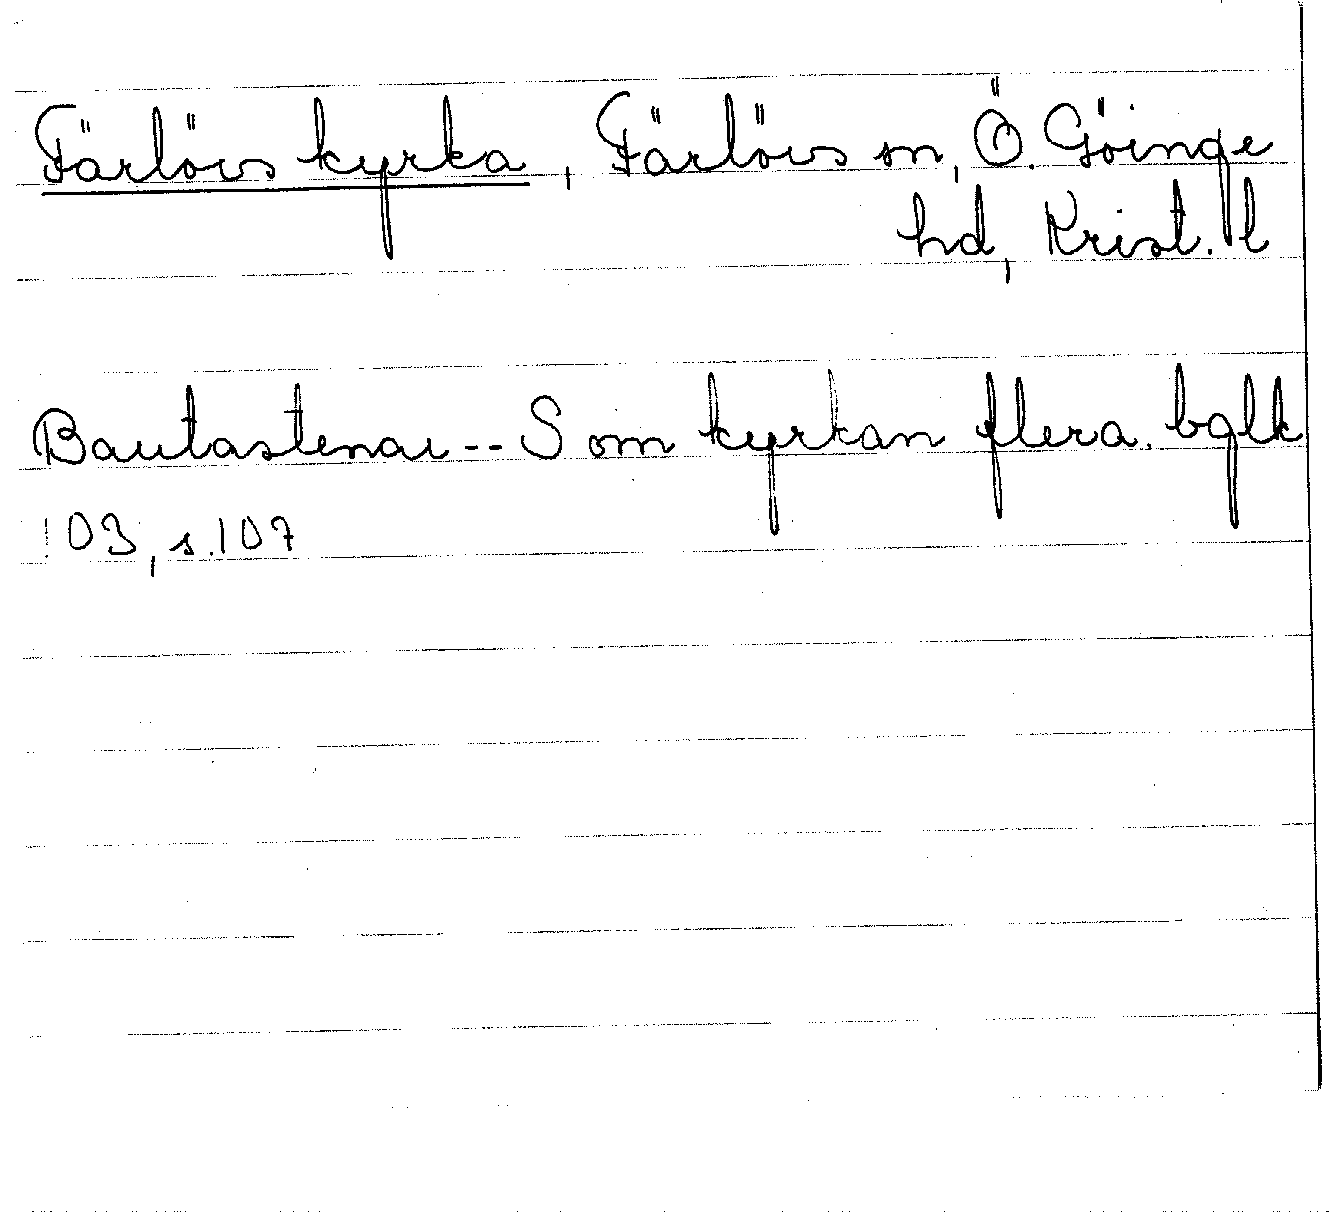 Färlövs kyrka, Färlövs sn, Ö. Göinge
hd, Krist. l
Bautastenar -- S om kyrkan flera. bglk
103, s. 107